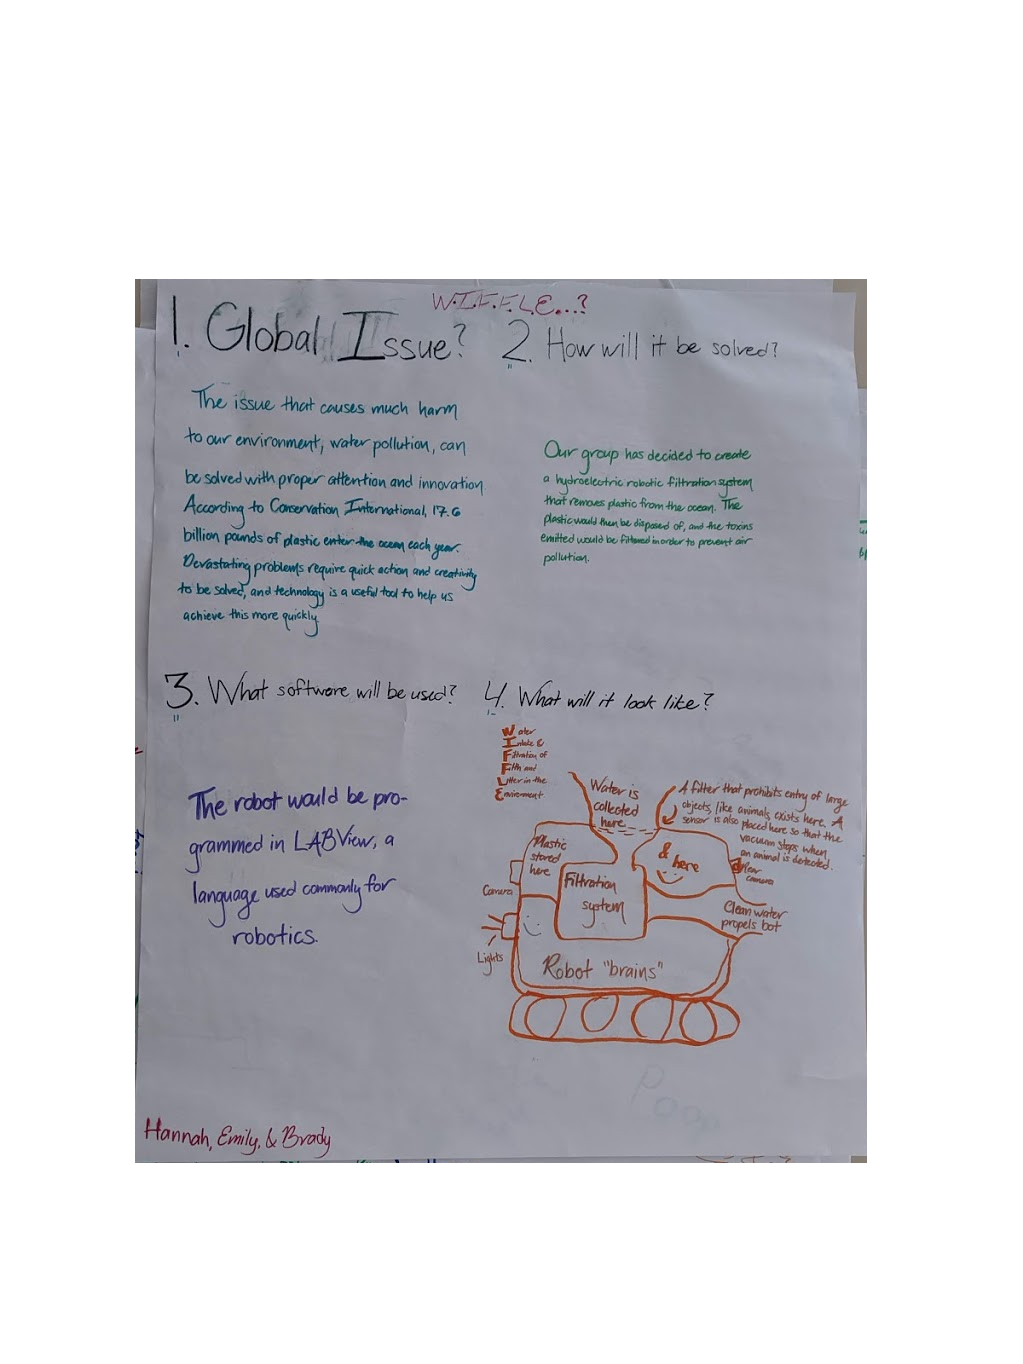 W.I.F.F.L.E...?
1. Global Issue?
The issue that causes much harm
to our environment, water pollution, can
be solved with proper attention and innovation
According to Conservation International, 17.6
billion pounds of plastic enter the ocean each year.
Devastating problems require quick action and creativity
to be solved, and technology is a useful tool to help us
achieve this more quickly.
2. How will it be solved?
Our group has decided to create
a hydroelectric robotic filtration system
that removes plastic from the ocean. The
plastic would then be disposed of, and the toxins
emitted would be filtered in order to prevent air
pollution.
3. What software will be used?
The robot would be pro-
grammed in LABView, a
language used commonly for
robotics.
4. What will it look like?
Water
Intake &
Filtration of
Filth and
Litter in the
Environment
Water is
collected
here
A filter that prohibits entry of large
objects, like animals, exists here. A
sensor is also placed here so that the
vacuum stops when
an animal is detected.
Plastic
stored
here
& here
Rear
camera
Camera
Filtration
system
Clean water
propels bot
Lights
Robot "brains"
Hannah, Emily, & Brady